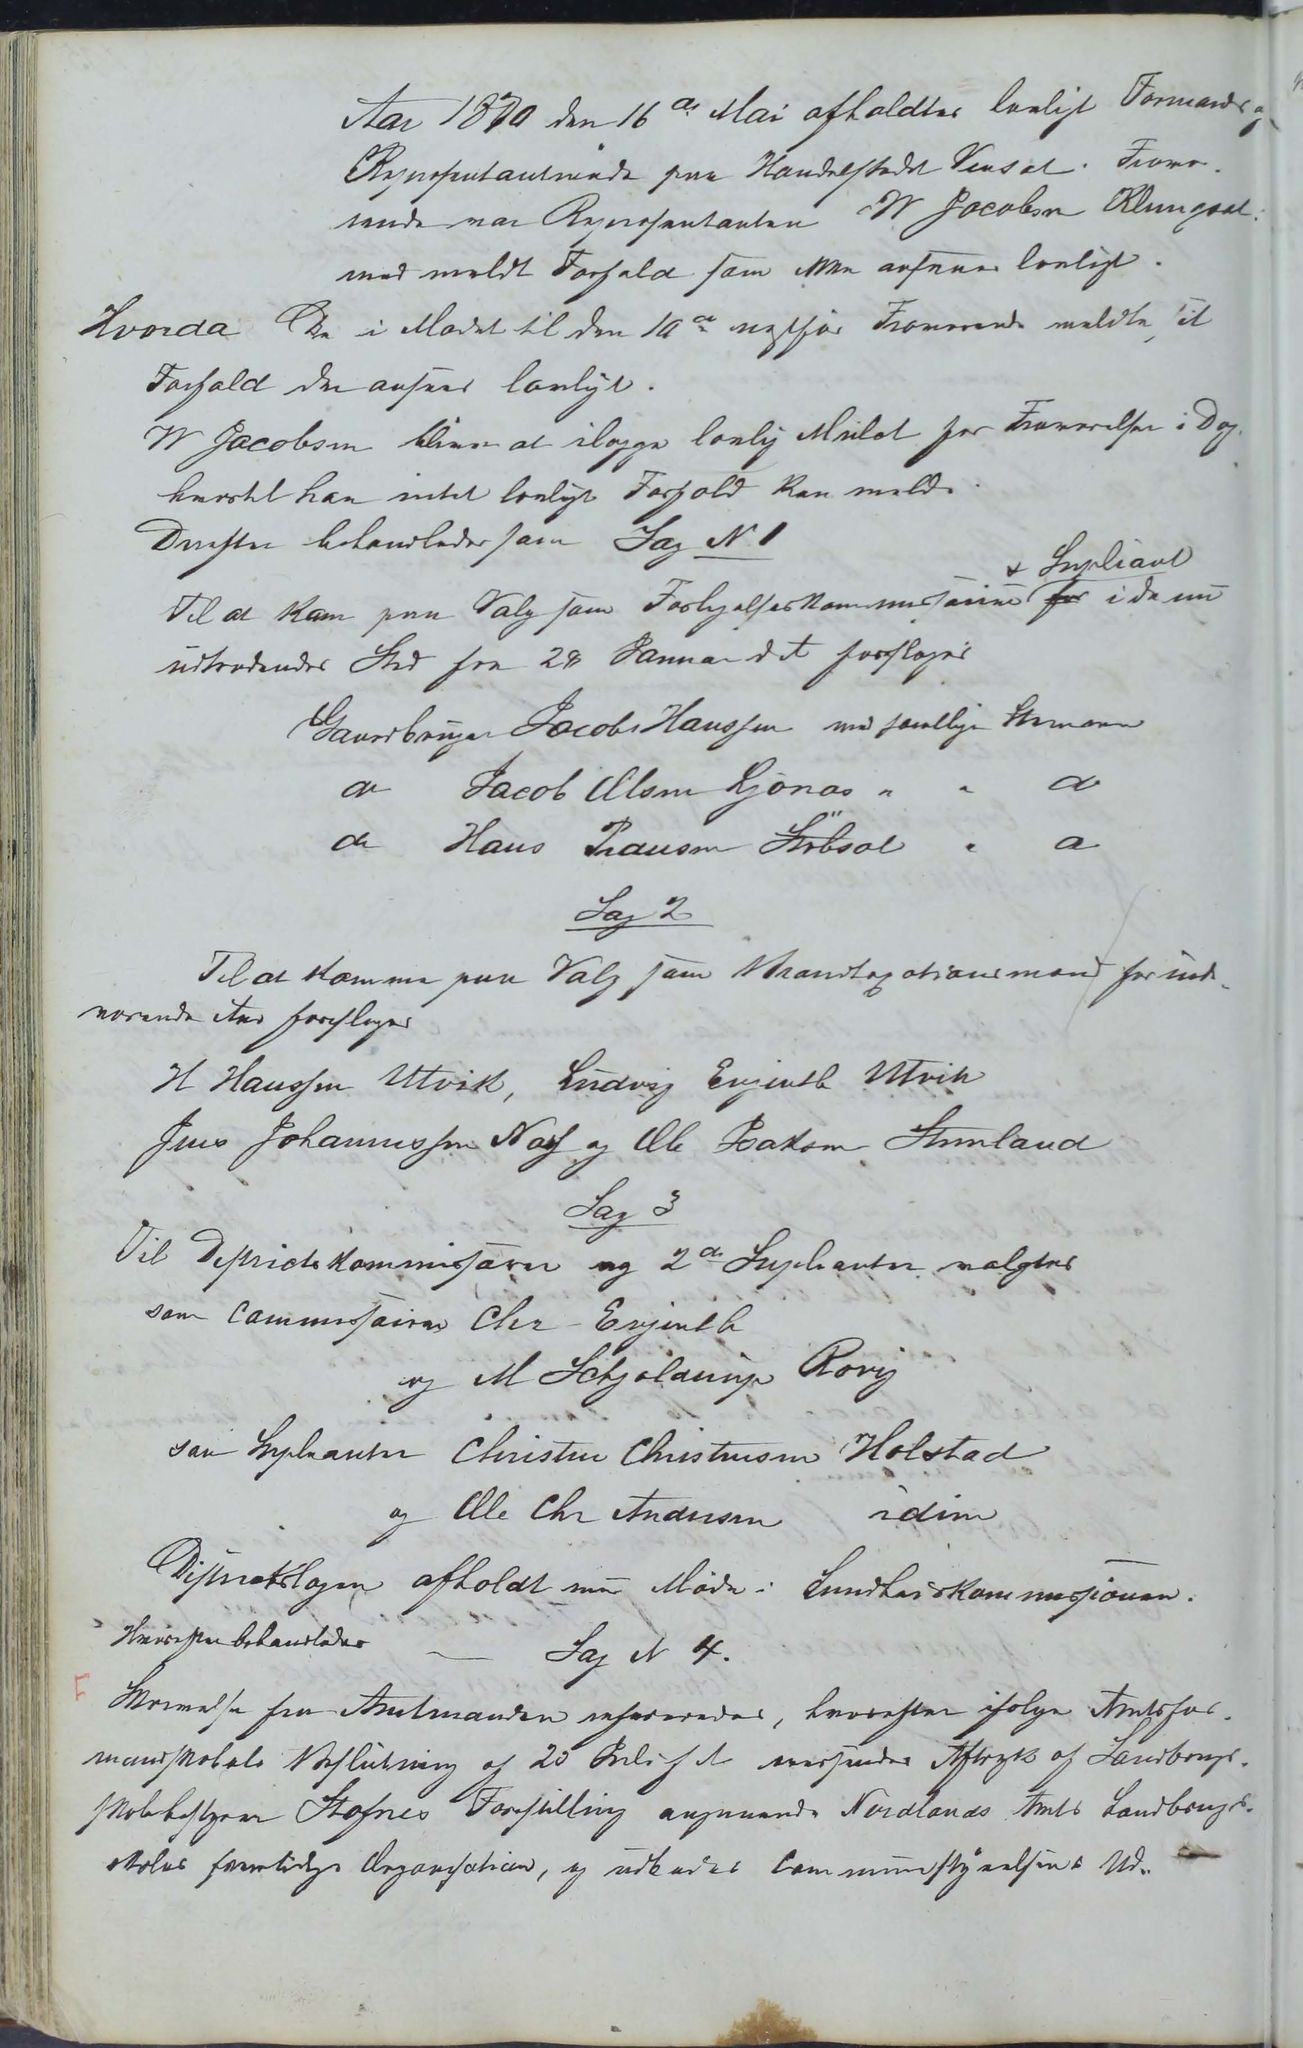 Aar 1870 den 16de Mai afholdtes lovligt Formands og
Repræsentantmøde paa Handelstedet Vensæt. Fravæ-
rende var Repræsentanten W Jacobsen Klungset
med meldt Forfald som ikke ansees lovligt.
Hvorda De i Mødet til den 10de næstfør Fraværende meldte, sit
Forfald der ansees lovligt.
W Jacobsen bliver at ilægge lovlig Mulct for Fraværelse i Dag
hvortil han intet lovligt Forfald kan melde.
Derefter behandledes som Sag N 1
Til at kom paa Valg som Forligelseskommissærer & Supliant i de nu
udtrædendes Sted fra 28 Januar d A foreslages
Gaardbruger Jacob Hanssen med samtlige Stemmer
do Jacob Olsen Kjønaas " " do
do Hans Paulsen " do
Sag 2
Til at komme paa Valg som Brandtaxationsmænd for ind-
værende Aar foreslages
H Hanssen Utvik, Ludvig Evjenth Utvik
Jens Johannessen Næss og Ole Isaksen Stemland
Sag 3
Til Districtskommissærer og 2de Suplianter valgtes
som Commissairer Chr Evjenth
og M Schjelderup Rovig
som Suplianter Christen Christensen Holstad
og Ole Chr Andersen idem
Districtslægen afholdt nu Møde i Sundhedskommissionen.
Hvorefter behandledes — Sag N 4.
Skrivelse fra Amtmanden refereredes, hvorefter ifølge Amtsfor-
mandskabets Beslutning af 23 Juli f A oversendes Aftryk af Landbrugs-
skolebestyrer Stofnes Forestilling angaaende Nordlands Amts Landbrugs-
skoles fremtidige Organisation, og udbedes Communestyrelsens Ud-